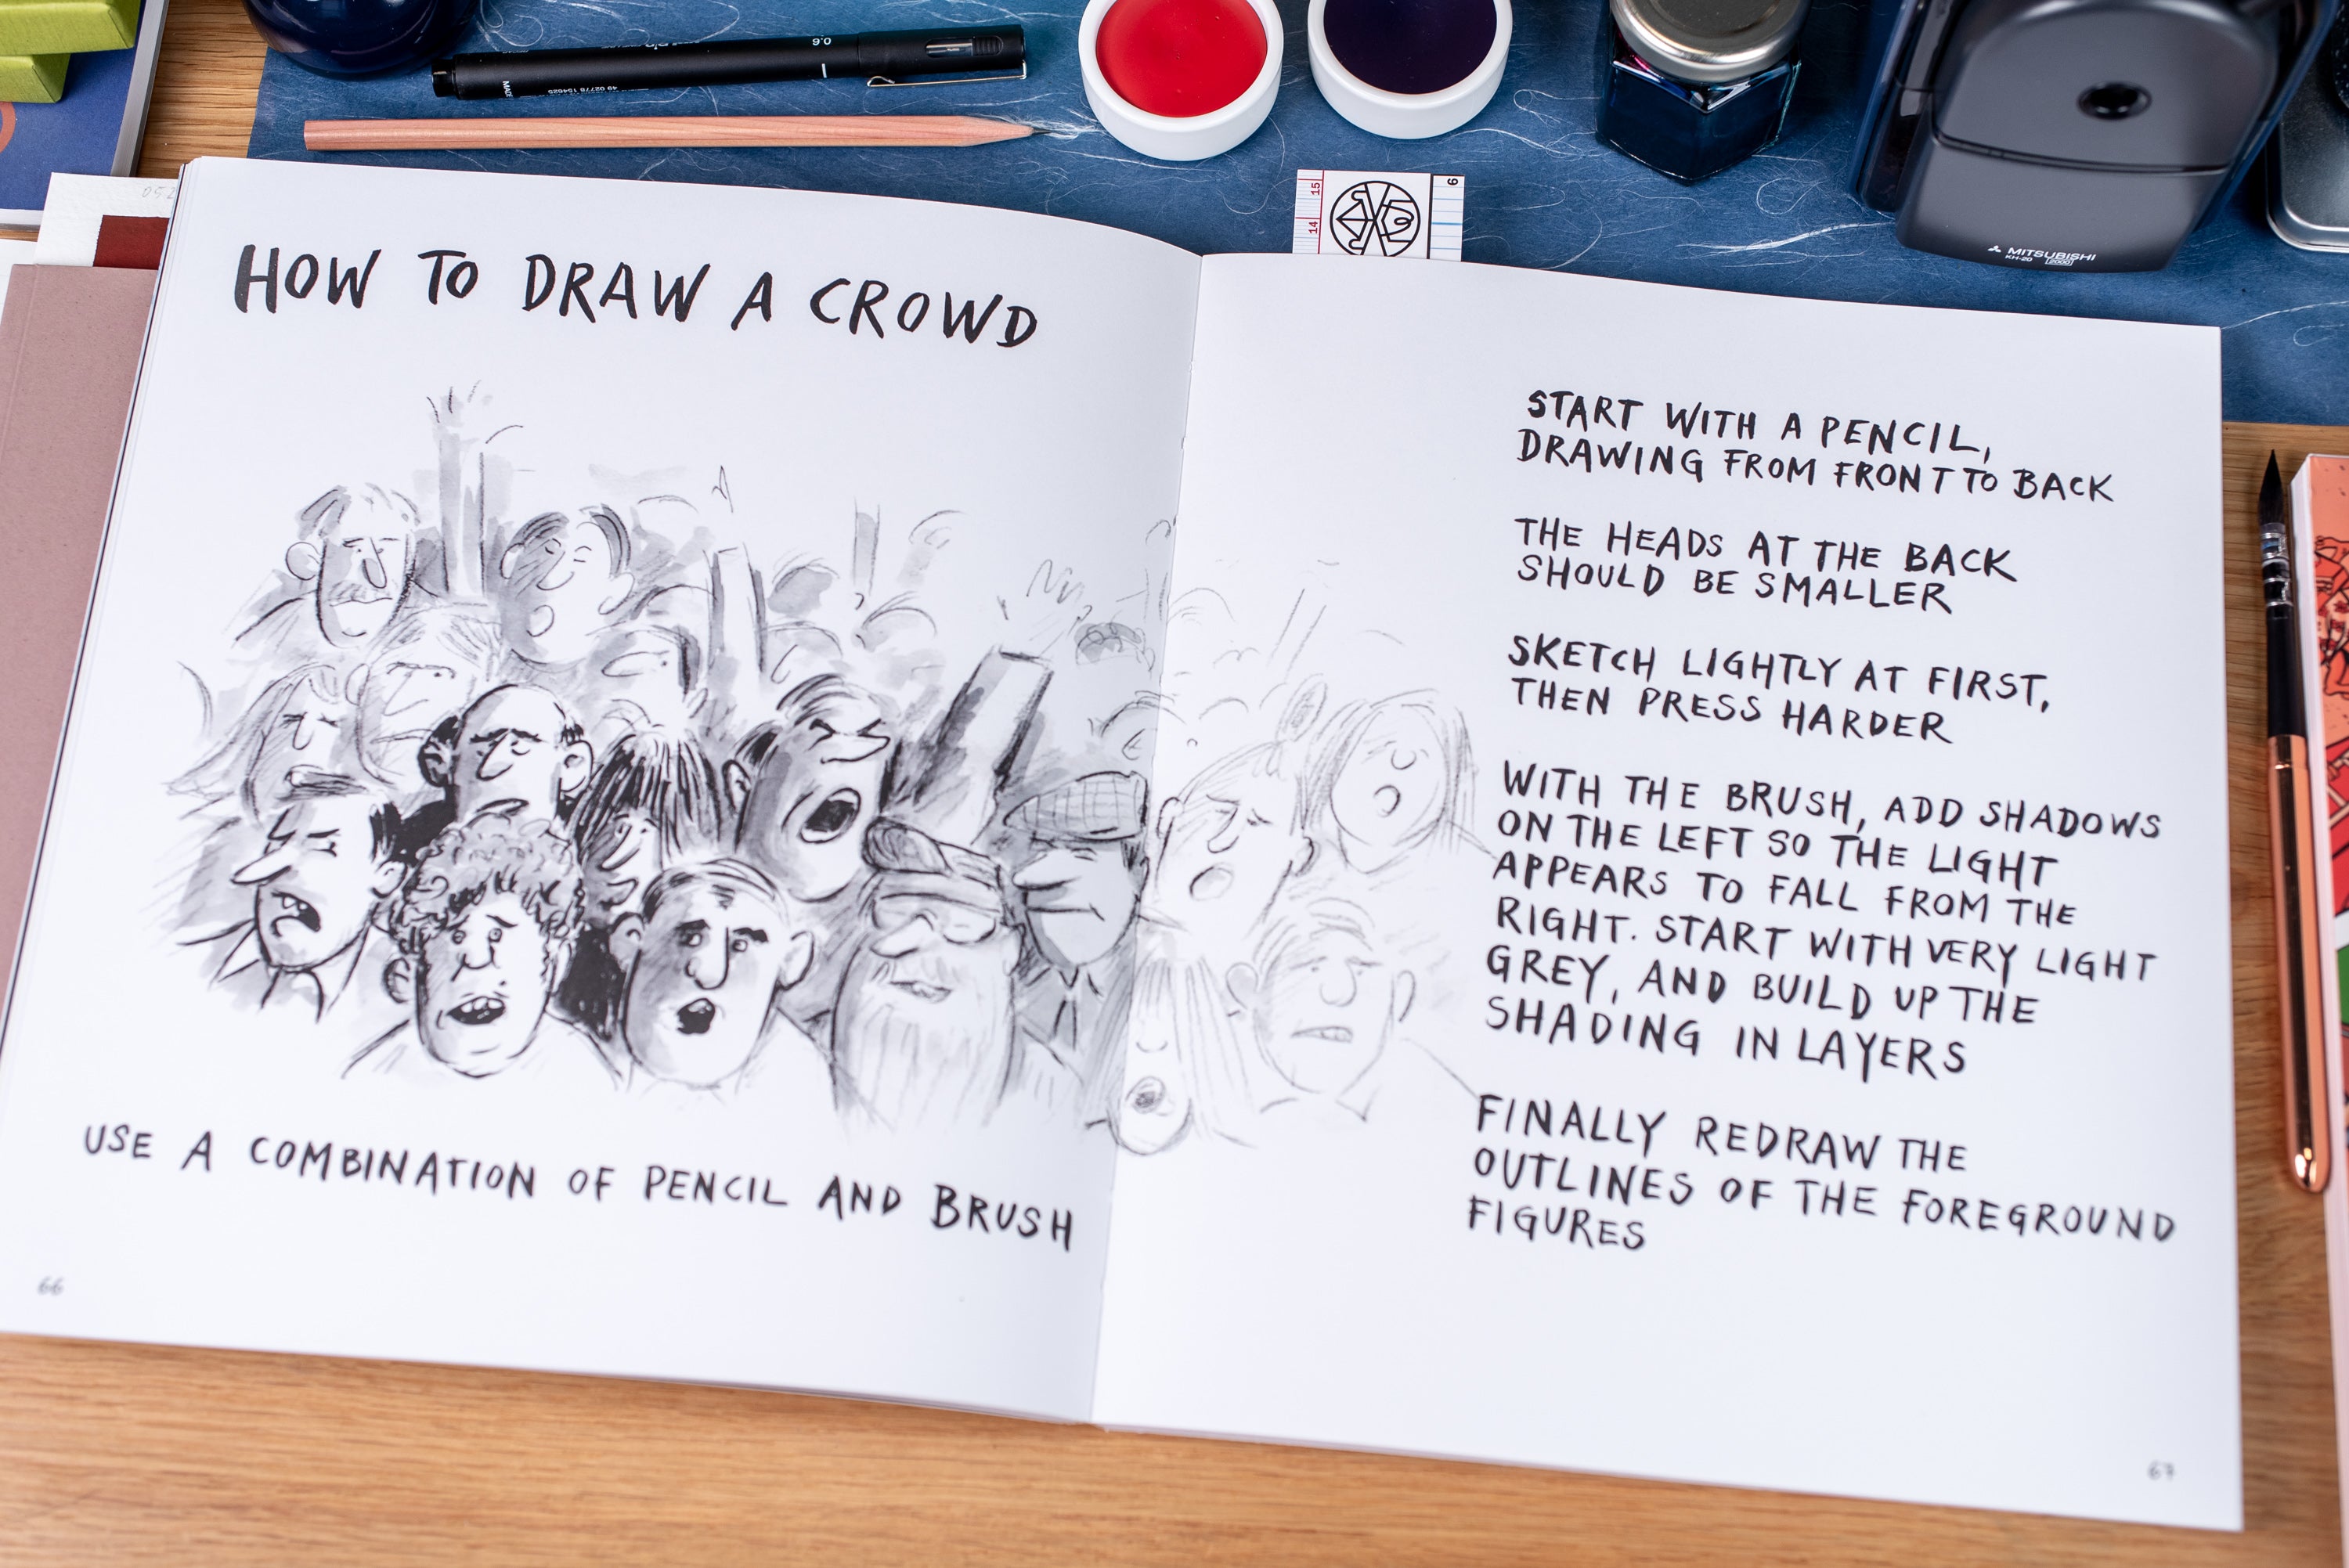 0.6
15
14
6
MITSUBISHI
KH-20 2000
HOW TO DRAW A CROWD
USE A COMBINATION OF PENCIL AND BRUSH
66
START WITH A PENCIL,
DRAWING FROM FRONT TO BACK
THE HEADS AT THE BACK
SHOULD BE SMALLER
SKETCH LIGHTLY AT FIRST,
THEN PRESS HARDER
WITH THE BRUSH, ADD SHADOWS
ON THE LEFT SO THE LIGHT
APPEARS TO FALL FROM THE
RIGHT. START WITH VERY LIGHT
GREY, AND BUILD UP THE
SHADING IN LAYERS
FINALLY REDRAW THE
OUTLINES OF THE FOREGROUND
FIGURES
67